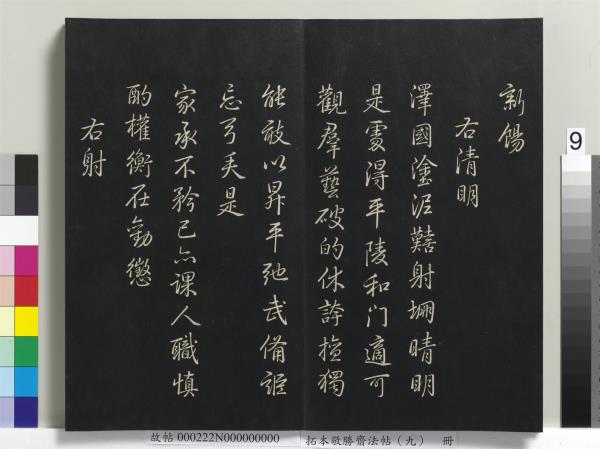 新餳
右清明
澤國塗泥囏射堋晴明
是處得平陵和门適可
觀羣藝破的休誇擅獨
能敢以昇平弛武備詎
忘弓矢是
家承不矜己亦課人職慎
酌權衡在勸懲
右射
故帖 000222N000000000 拓本敬勝齋法帖（九） 冊
9